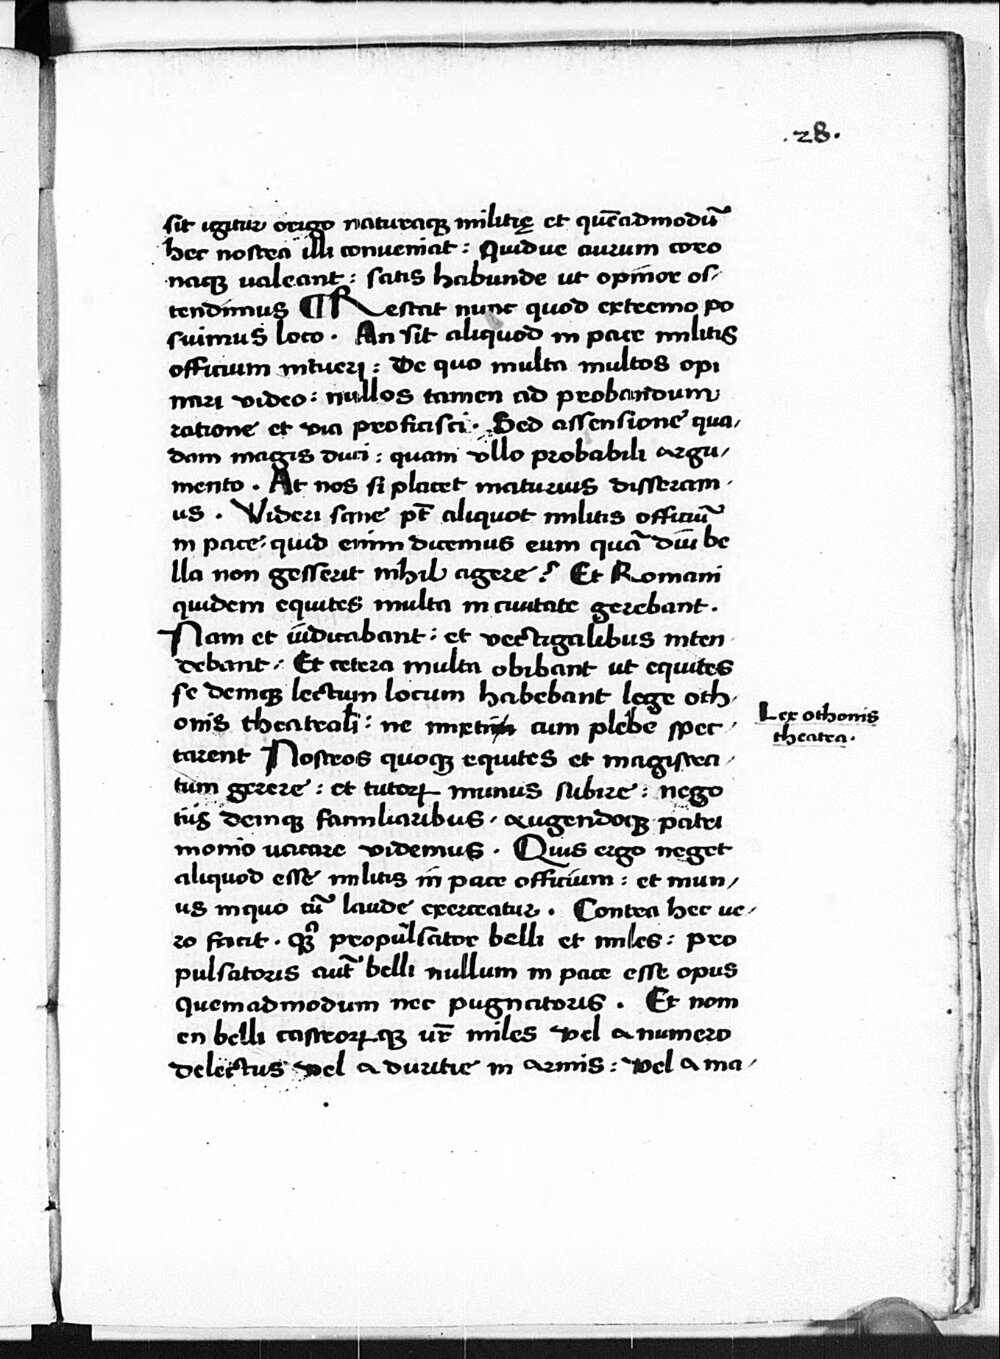 .28.
sit igitur origo naturaq̨ militię et quēadmodū
hec nostra illi conveniat : Quidve aurum coro
naq̨ valeant : satis habunde ut opinor os/
tendimus ¶ Restat nunc quod extremo po
suimus loco . An sit aliquod in pace militis
officium intueri : De quo multa multos opi
nari video : nullos tamen ad probandum
ratione et via proficisci . Sed assensione qua/
dam magis duci : quam vllo probabili argu/
mento . At nos si placet maturius disseram/
us . Videri sane pt̄ aliquot militis officiū
in pace : quid enim dicemus eum quā diū be
lla non gesserit nihil agere ? Et Romani
quidem equites multa in civitate gerebant .
Nam et iūdicabant : et vectigalibus inten/
debant / Et cetera multa obibant ut equites
se demq̨ lectum locum habebant lege oth/
onis theatrali : ne mixtim cum plebe spec/
Lex othonis
theatra .
tarent Nostros quoq̨ equites et magistra/
tum gerere : et tutorꝝ munus subire : nego
tiis demq̨ familiaribus / augendoq̨ patri
monio vacare videmus . Quis ergo neget
aliquod esse militis in pace officium : et mun/
us inquo cū laude exerceatur . Contra hec ve/
ro facit . qꝫ propulsator belli et miles : pro
pulsatoris aut̄ belli nullum in pace esse opus
quemadmodum nec pugnatoris . Et nom
en belli castrorꝝq̨ ut̄ miles vel a numero
delectus vel a duritie in armis : vel a ma/